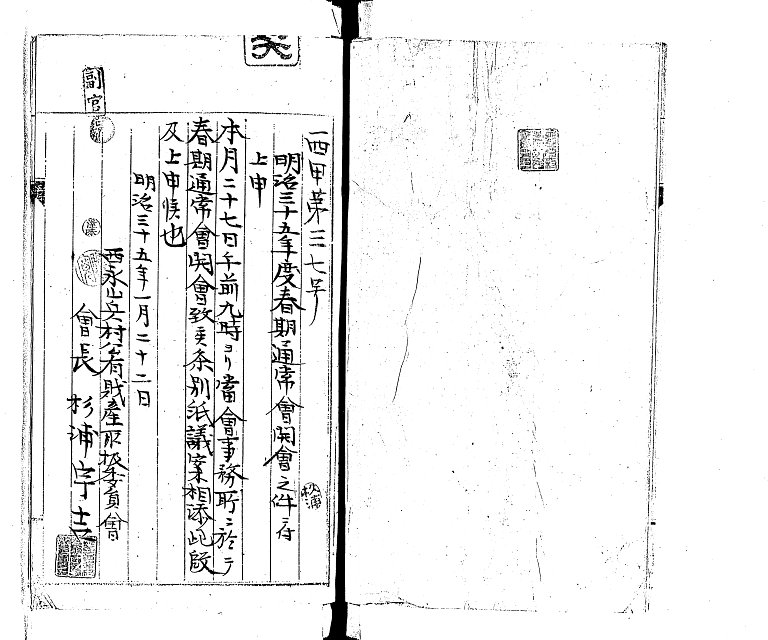 西甲第三七号
明治三十五年度春期通常會開會之件ニ付
上申
本月二十七日午前九時ヨリ當會事務所ニ於テ
春期通常會開會致候条別紙議案相添此段
及上申候也
明治三十五年一月二十二日
西永山兵村公有財産取扱委員會
會長 杉浦
副官
杉浦